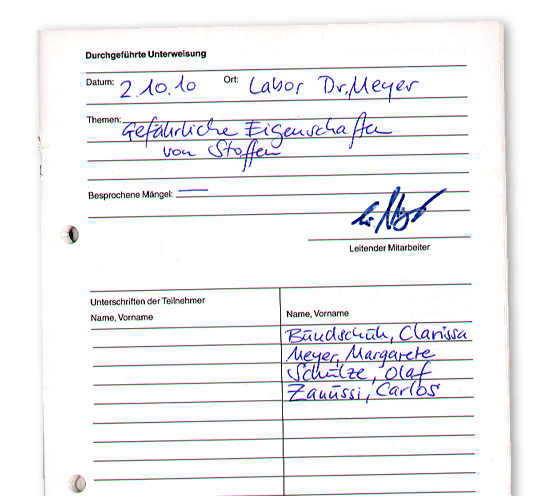 Durchgeführte Unterweisung
Datum: 2.10.10 Ort: Labor Dr. Meyer
Themen: Gefährliche Eigenschaften
von Stoffen
Besprochene Mängel: —
Leitender Mitarbeiter
Unterschriften der Teilnehmer
Name, Vorname Name, Vorname
Bundschuh, Clarissa
Meyer, Margarete
Schulze, Olaf
Zanussi, Carlos